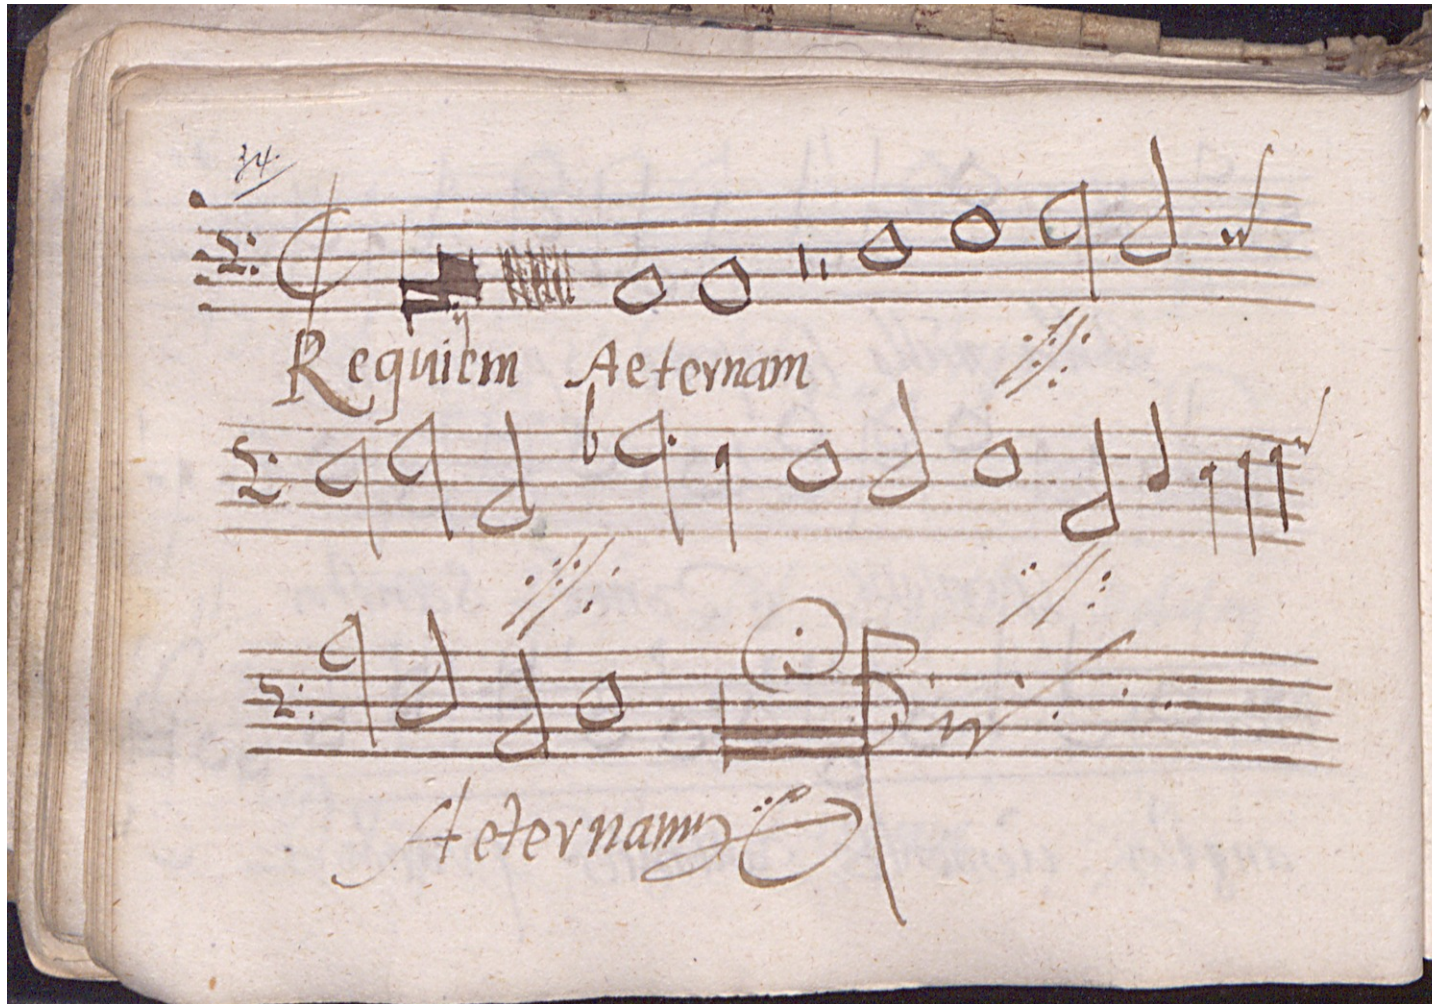 34.
Requiem Aeternam
Aeternam